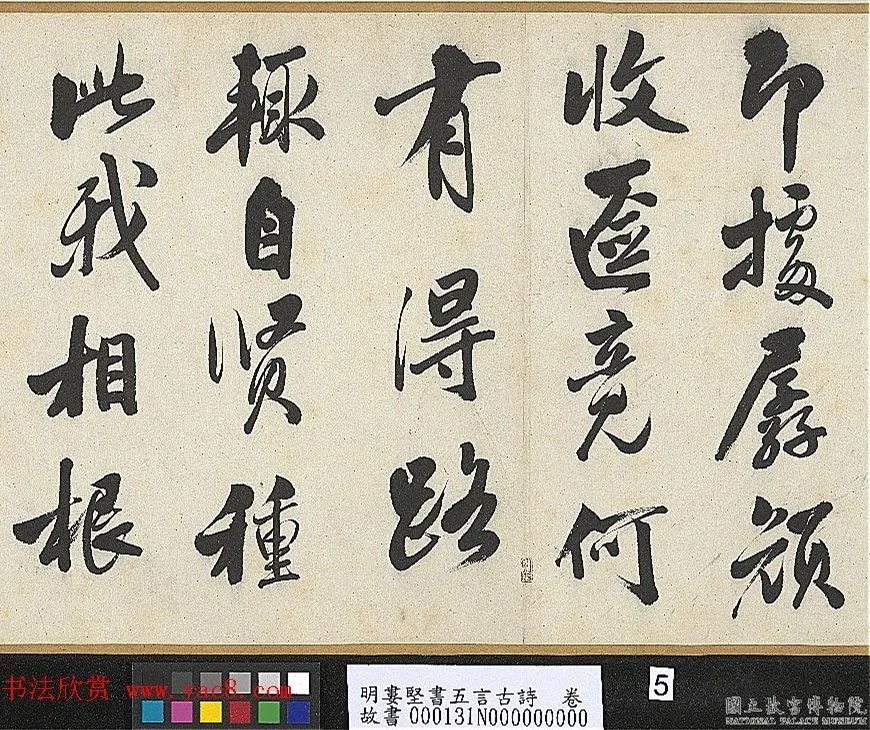 據孱顔
收匳竟何
有得路
輒自賢種
此我相根
書法欣赏 www.yac8.com
明婁堅書五言古詩 卷
故書 000131N000000000
5
國立故宮博物院
NATIONAL PALACE MUSEUM